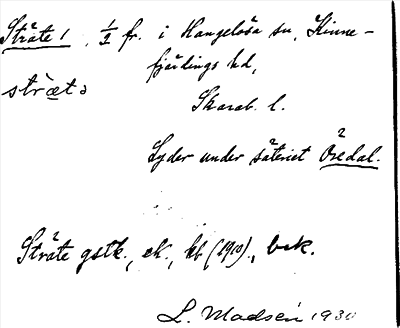 Stråte 1, 1/2 fr. i Hangelösa sn, Kinne-
fjärdings hd,
stræ̀tɔ
Skarab. l.
Lyder under säteriet Öredal.
Stråte gstk., ek., kb (1910)., brk.
L. Madsén 1930